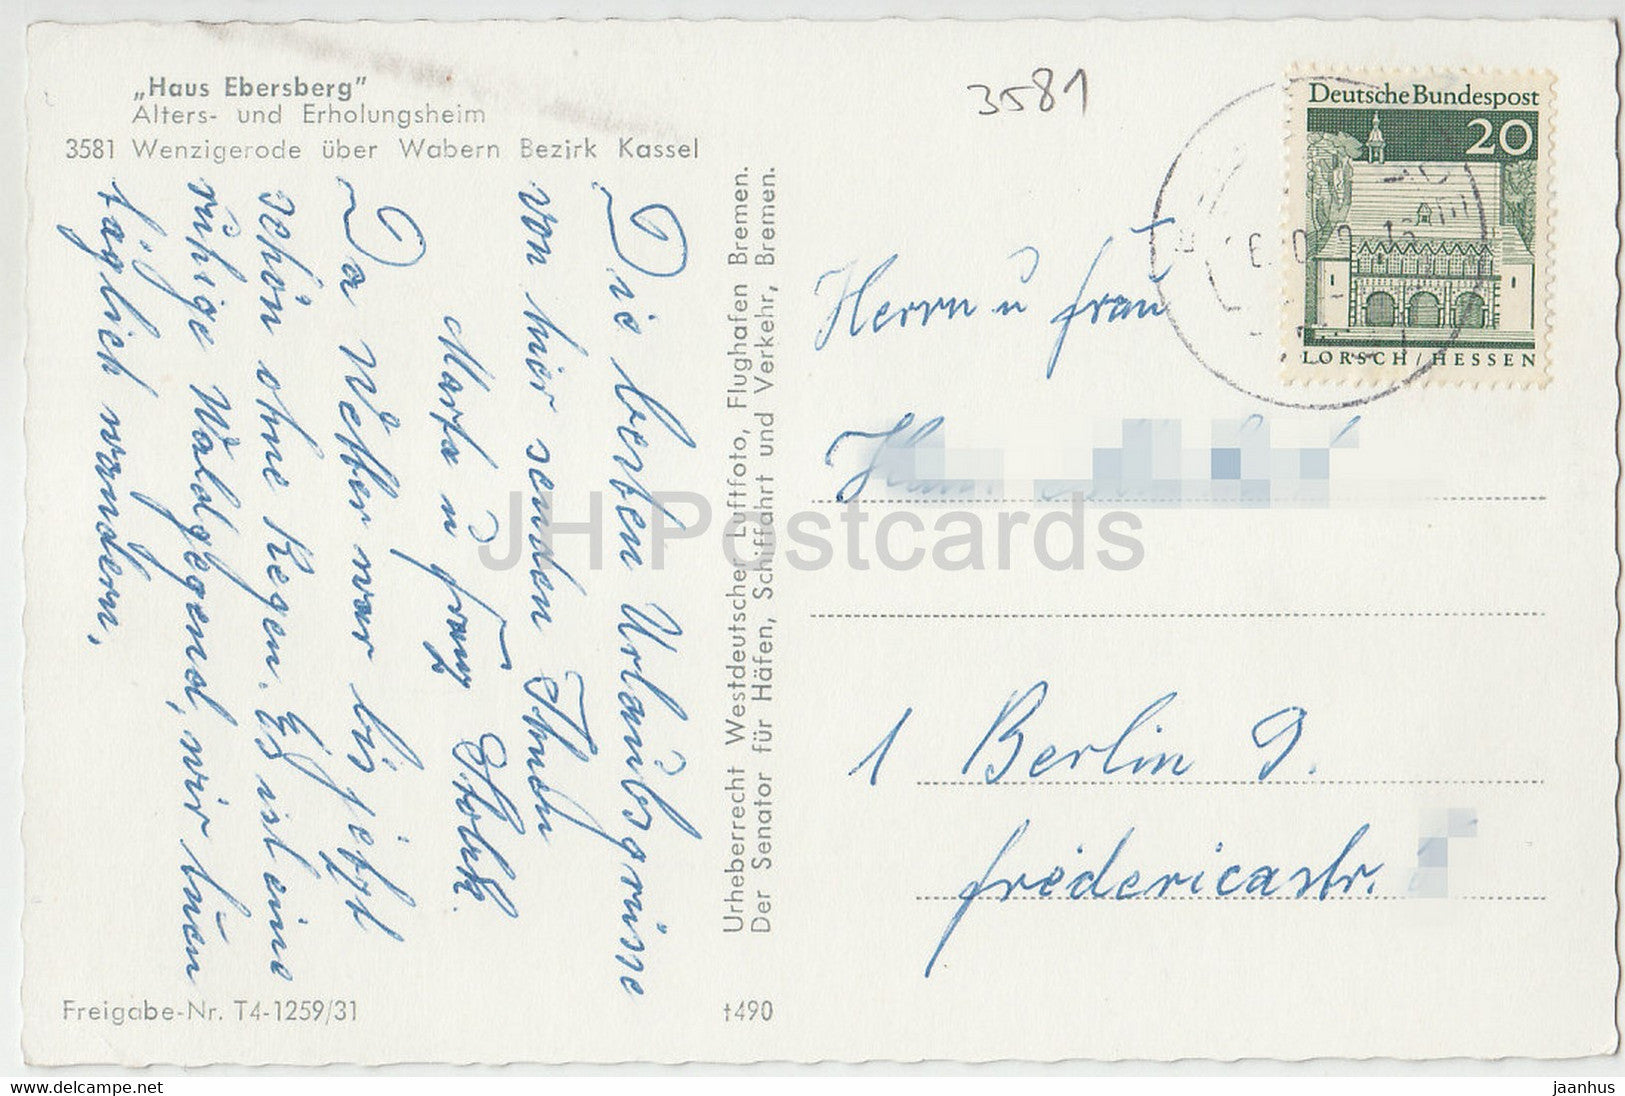 „Haus Ebersberg"
Alters- und Erholungsheim
3581 Wenzigerode über Wabern Bezirk Kassel
Die besten Urlaubsgrüsse
von hier senden Ihnen
Marta u Franz
Da Wetter war bis jetzt
schön ohne Regen. Es ist eine
ruhige Waldgegend, wir tuen
täglich wandern,
Freigabe-Nr. T4-1259/31
Urheberrecht Westdeutscher Luftfoto, Flughafen Bremen.
Der Senator für Häfen, Schiffahrt und Verkehr, Bremen.
†490
3581
Deutsche Bundespost
20
LORSCH / HESSEN
Herrn u Frau
1 Berlin 9.
Fredericastr.
JH Postcards
www.delcampe.net
jaanhus